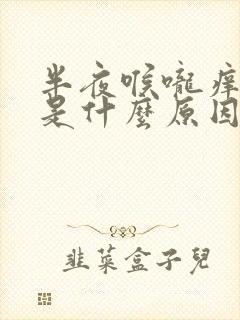 半夜喉嚨痒
是什麼原因
韭菜盒子兒